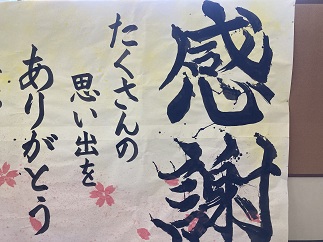 感謝
たくさんの
思い出を
ありがとう